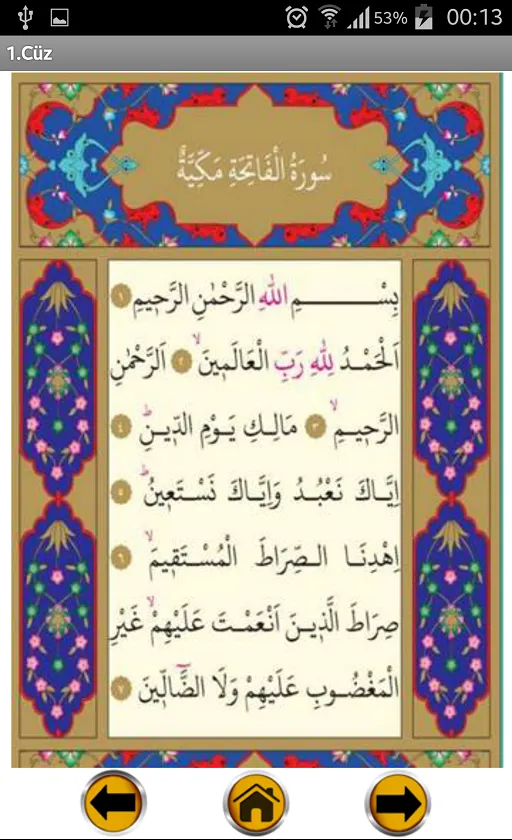 53% 00:13
1.Cüz
سُورَةُ الْفَاتِحَةِ مَكِّيَّةٌ
بِسْــــــــمِ اللهِ الرَّحْمٰنِ الرَّحٖيمِ ١
اَلْحَمْـدُ لِلّٰهِ رَبِّ الْعَالَمٖينَۙ ٢ اَلرَّحْمٰنِ
الرَّحٖيـمِۙ ٣ مَالِـكِ يَـوْمِ الدّٖيـنِؕ ٤
اِيَّـاكَ نَعْبُـدُ وَاِيَّـاكَ نَسْـتَعٖينُؕ ٥
اِهْدِنَـا الـصِّرَاطَ الْمُسْـتَقٖيمَۙ ٦
صِرَاطَ الَّذٖيـنَ اَنْعَمْـتَ عَلَيْهِمْۙ غَيْرِ
الْمَغْضُـوبِ عَلَيْهِمْ وَلَا الضَّٓالّٖينَ ٧